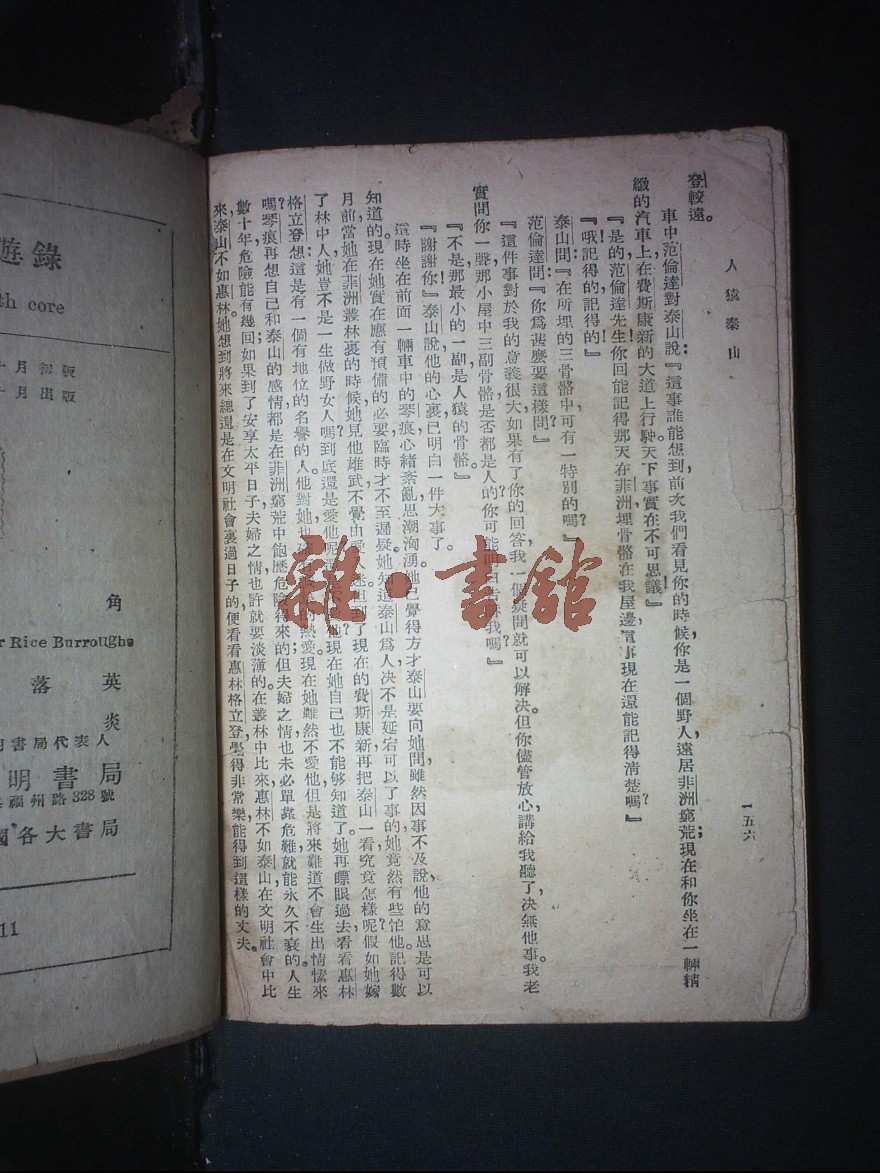 人猿泰山
一五六
登較遠。
車中范倫達對泰山說：『這事誰能想到，前次我們看見你的時候，你是一個野人，遠居非洲窮荒；現在和你坐在一輛精
緻的汽車上，在費斯康新的大道上行駛。天下事實在不可思議！』
『是的，范倫達先生！你回能記得那天在非洲埋骨骼在我屋邊，這事現在還能記得清楚嗎？』
『哦！記得的，記得的！』
泰山問：『在所埋的三骨骼中，可有一特別的嗎？』
范倫達問：『你爲甚麼要這樣問？』
『這件事對於我的意義很大，如果有了你的回答，我一個疑問就可以解決。但你儘管放心，講給我聽了，決無他事。我老
實問你一聲，那小屋中三副骨骼是否都是人的？你可能明白告訴我嗎？』
『不是！那最小的一副是人猿的骨骼。』
『謝謝你！』泰山說，他的心裏已明白一件大事了。
這時坐在前面一輛車中的琴痕，心緒紊亂，思潮洶湧，她已覺得方才泰山要向她問，雖然因事不及說，他的意思是可以
知道的。現在她實在應有預備的必要，臨時才不至遲疑。她知道泰山爲人，決不是延宕可以了事的，她竟然有些怕他。記得數
月前，當她在非洲叢林裏的時候，她見他雄武，不覺由愛
現在的費斯康新，再把泰山一看，究竟怎樣呢？假如她嫁
了林中人，她豈不是一生做野女人嗎？到底還是愛他呢
現在她自己也不能够知道了。她再瞟眼過去看看惠林
格立登，想這是有一個有地位的名譽的人。他對她也
的熱愛，現在她雖然不愛他，但是將來難道不會生出情愫來
嗎？琴痕再想自己和泰山的感情，都是在非洲窮荒中飽歷危險得來的；但夫婦之情，也未必單靠危難就能永久不衰的。人生
數十年，危險能有幾回，如果到了安享太平日子，夫婦之情也許就要淡薄的。在叢林中比來，惠林不如泰山；在文明社會中比
來，泰山不如惠林。她想到將來總還是在文明社會裏過日子的，便看看惠林格立登，覺得非常樂，能得到這樣的丈夫。
遊錄
th core
十月初版
十月出版
角
r Rice Burroughs
落英
炎
明書局代表人
明書局
福州路328號
國各大書局
11
雜·書館